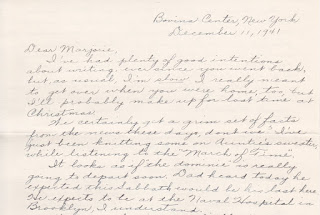 Bovina Center, New York
December 11, 1941
Dear Marjorie,
I've had plenty of good intentions
about writing ever since you went back,
but, as usual, I'm slow. I really meant
to get over when you were home, too but
I'll probably make up for lost time at
Christmas.
We certainly get a grim set of facts
from the news these days, don't we? I've
just been knitting some on Aunties sweater
while listening to the "March of Time".
It looks as if the dominie is really
going to depart soon. Dad heard today he
expected this Sabbath would be his last here
He expects to be at the Naval Hospital in
Brooklyn, I understand.